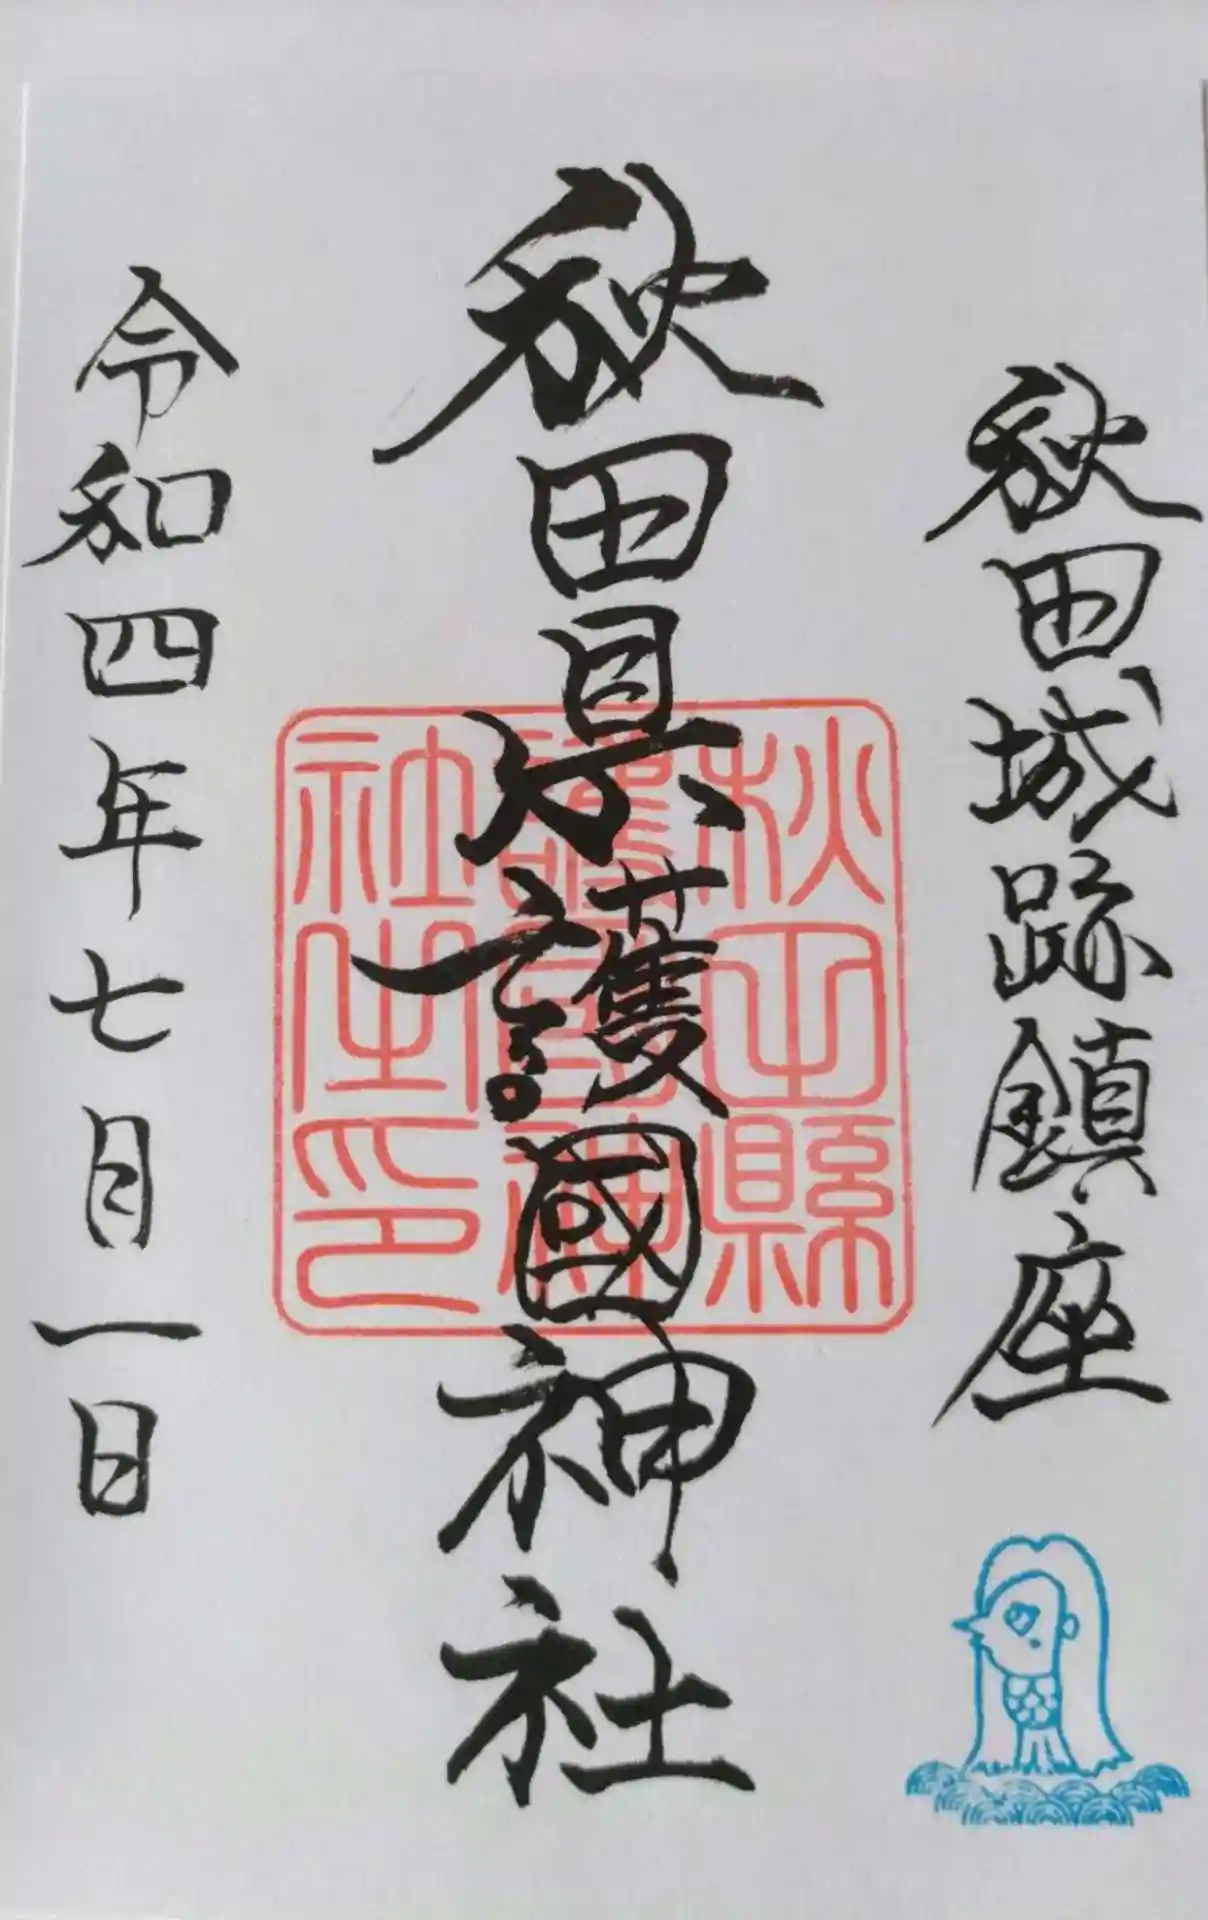 秋田城跡鎮座
秋田県護國神社
秋田縣
護國神
社之印
令和四年七月一日